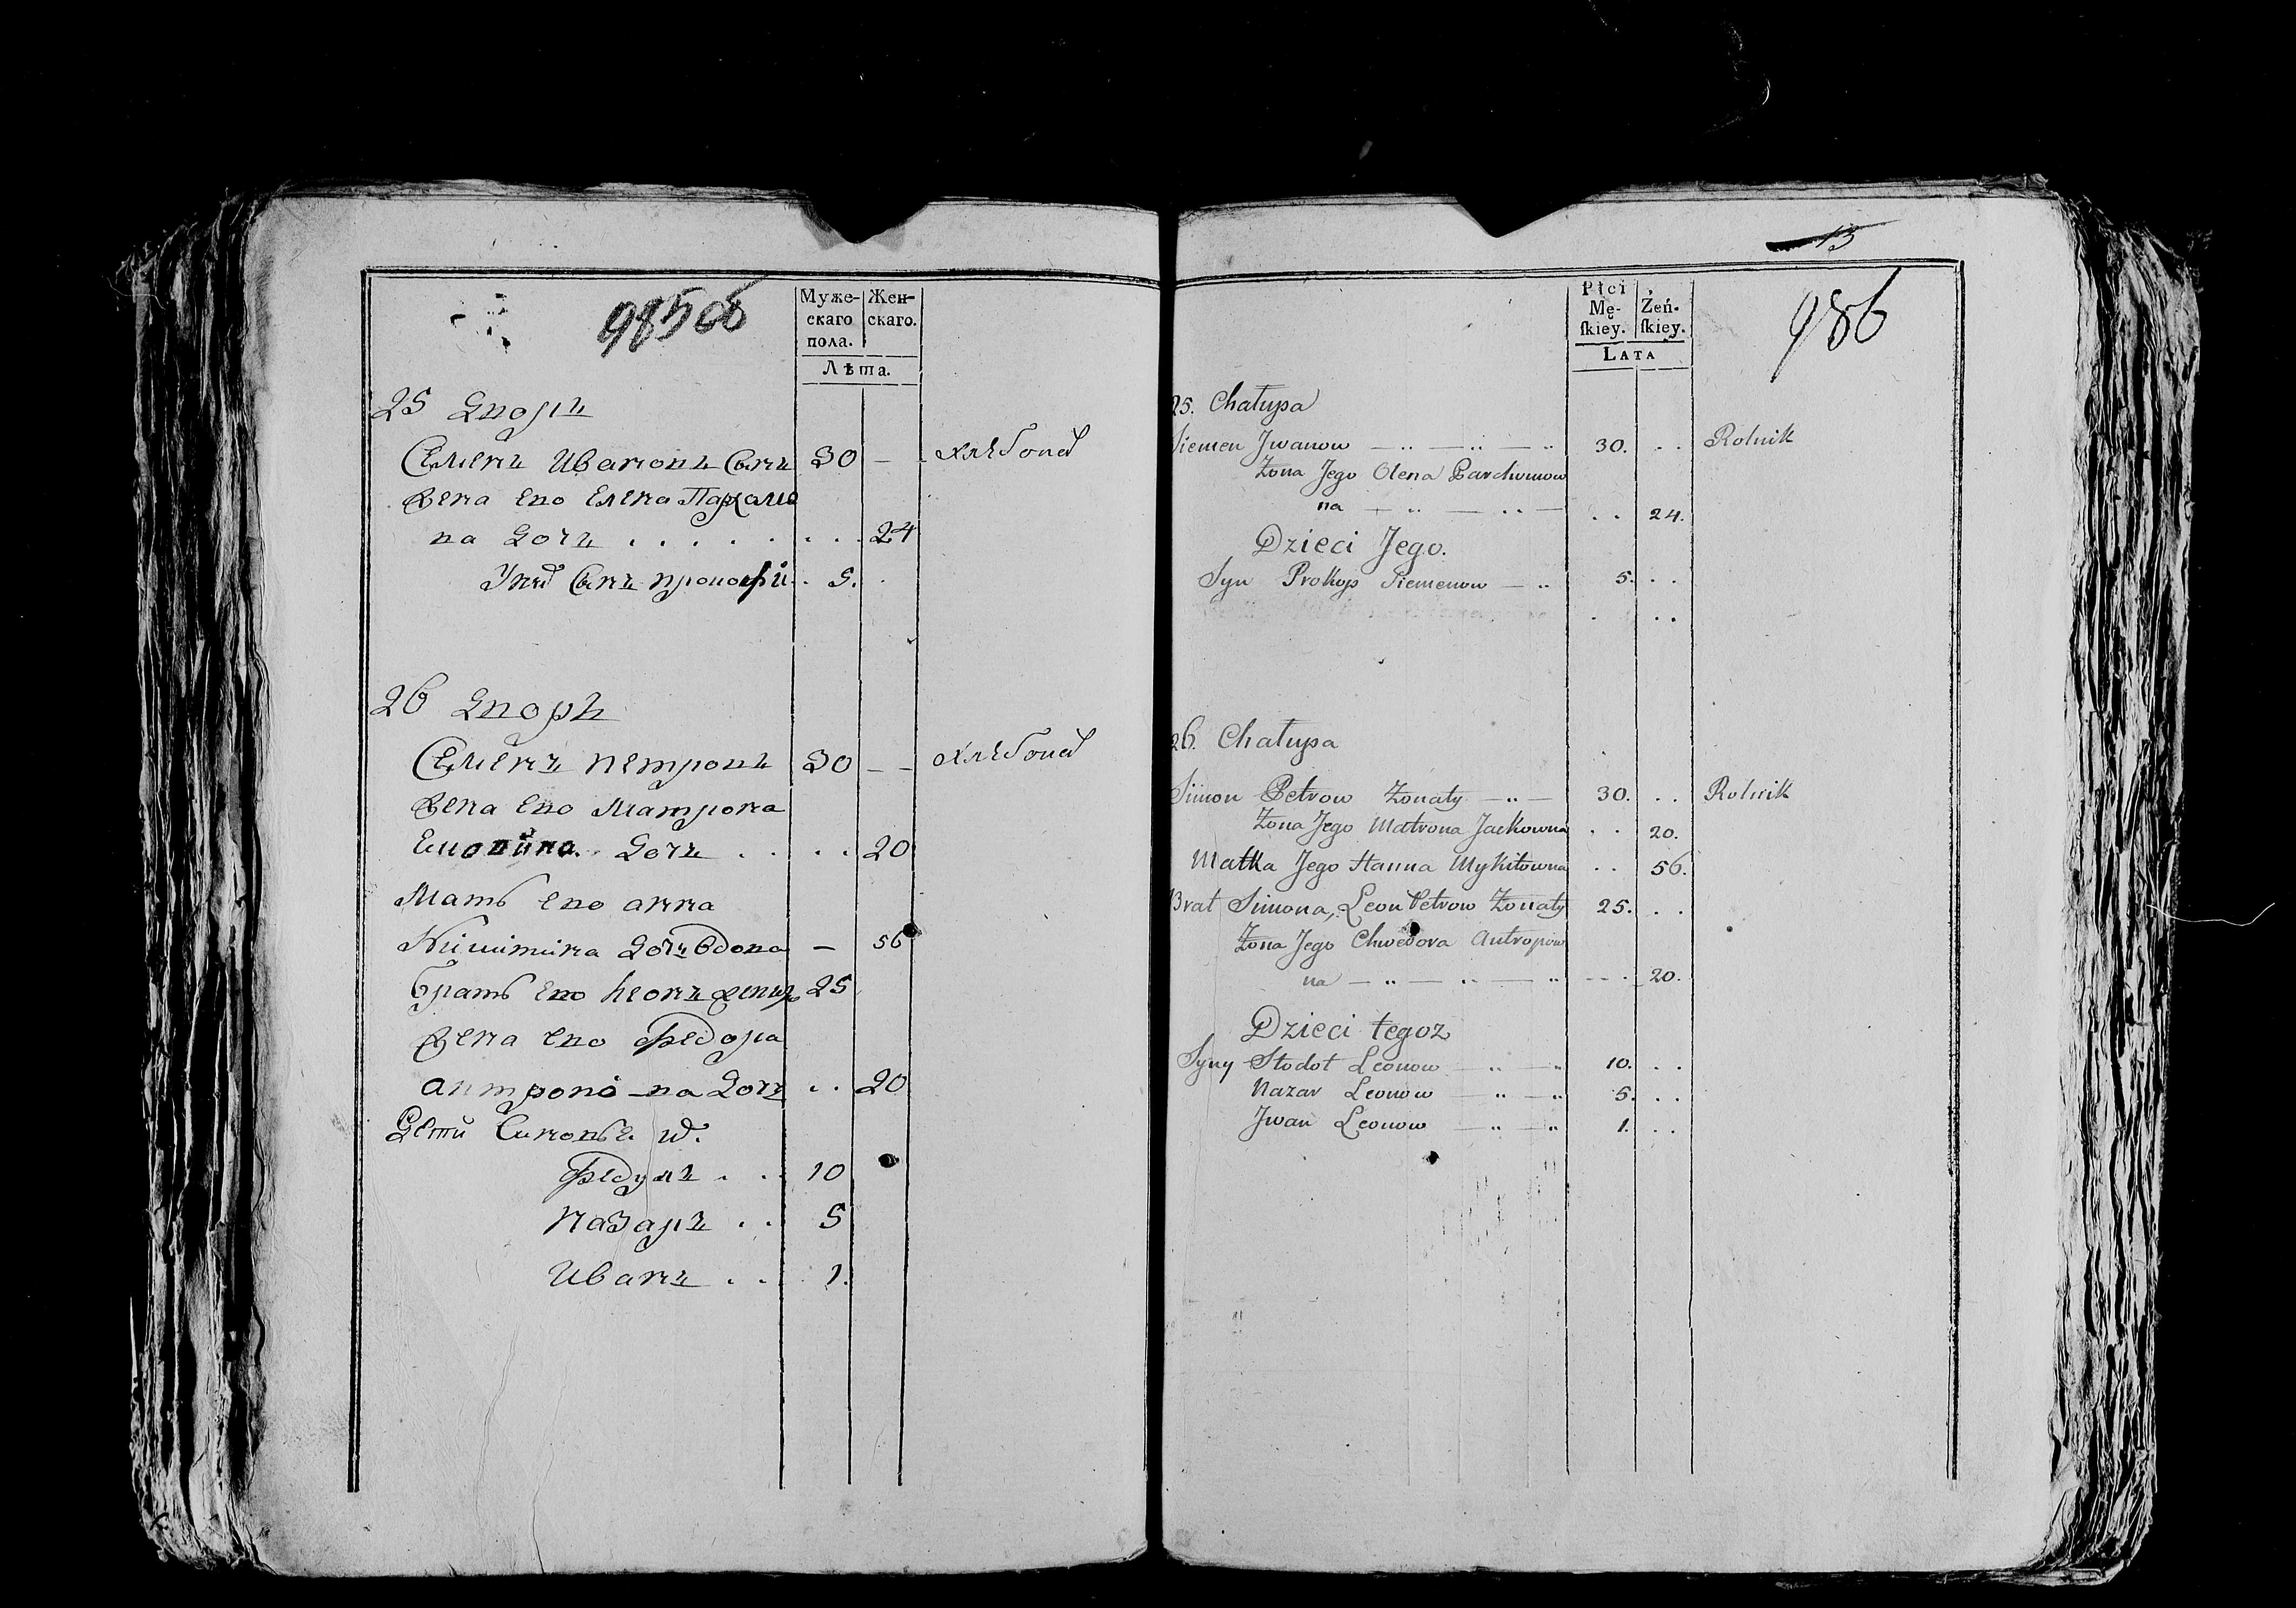 985 об
Муже-
скаго
пола.
Жен-
скаго.
Лѣта.
25 Дворъ
Семенъ Ивановъ Сынъ 30 — хлѣбопа
Жена ево Елена Пархамо
ва Дочь . . . . . . . . 24
У них Сынъ прокофй . 5. .
26 Дворъ
Семенъ петровъ 30 — — хлѣбопа
Жена ево Матрона
Дочь . . . . 20
Мать ево анна
Никитина Дочь вдова — 56
братъ ево Леонъ 25
Жена ево Федора
антропо-ва Дочь . . 20
Дети
Федулъ . . 10
Назаръ . . 5
Иванъ . . 1.
13
986
Płci
Mę-
ſkiey.
Żeń-
ſkiey.
LATA
25. Chałupa
Siemen Jwanow — .. — .. — .. 30. . . Rolnik
Żona Jego Olena Parchomow
na — .. — .. — . . 24.
Dzieci Jego.
Syn Prokop Siemenow — .. 5. . .
26. Chałupa
Simon Petrow Żonaty — .. — 30. . . Rolnik
Żona Jego Matrona Jackowna . . 20.
Matka Jego Hanna Mykitowna . . 56.
Brat Simona, Leon Petrow Żonaty 25. . .
Żona Jego Chwedora Antropow
na — .. — .. — .. — . 20.
Dzieci tegoz
Syny Stodot Leonow — .. — .. 10. . .
Nazar Leonow — .. — .. 5. . .
Jwan Leonow — .. — .. 1. . .